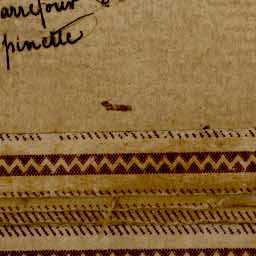 arrefour
pinette